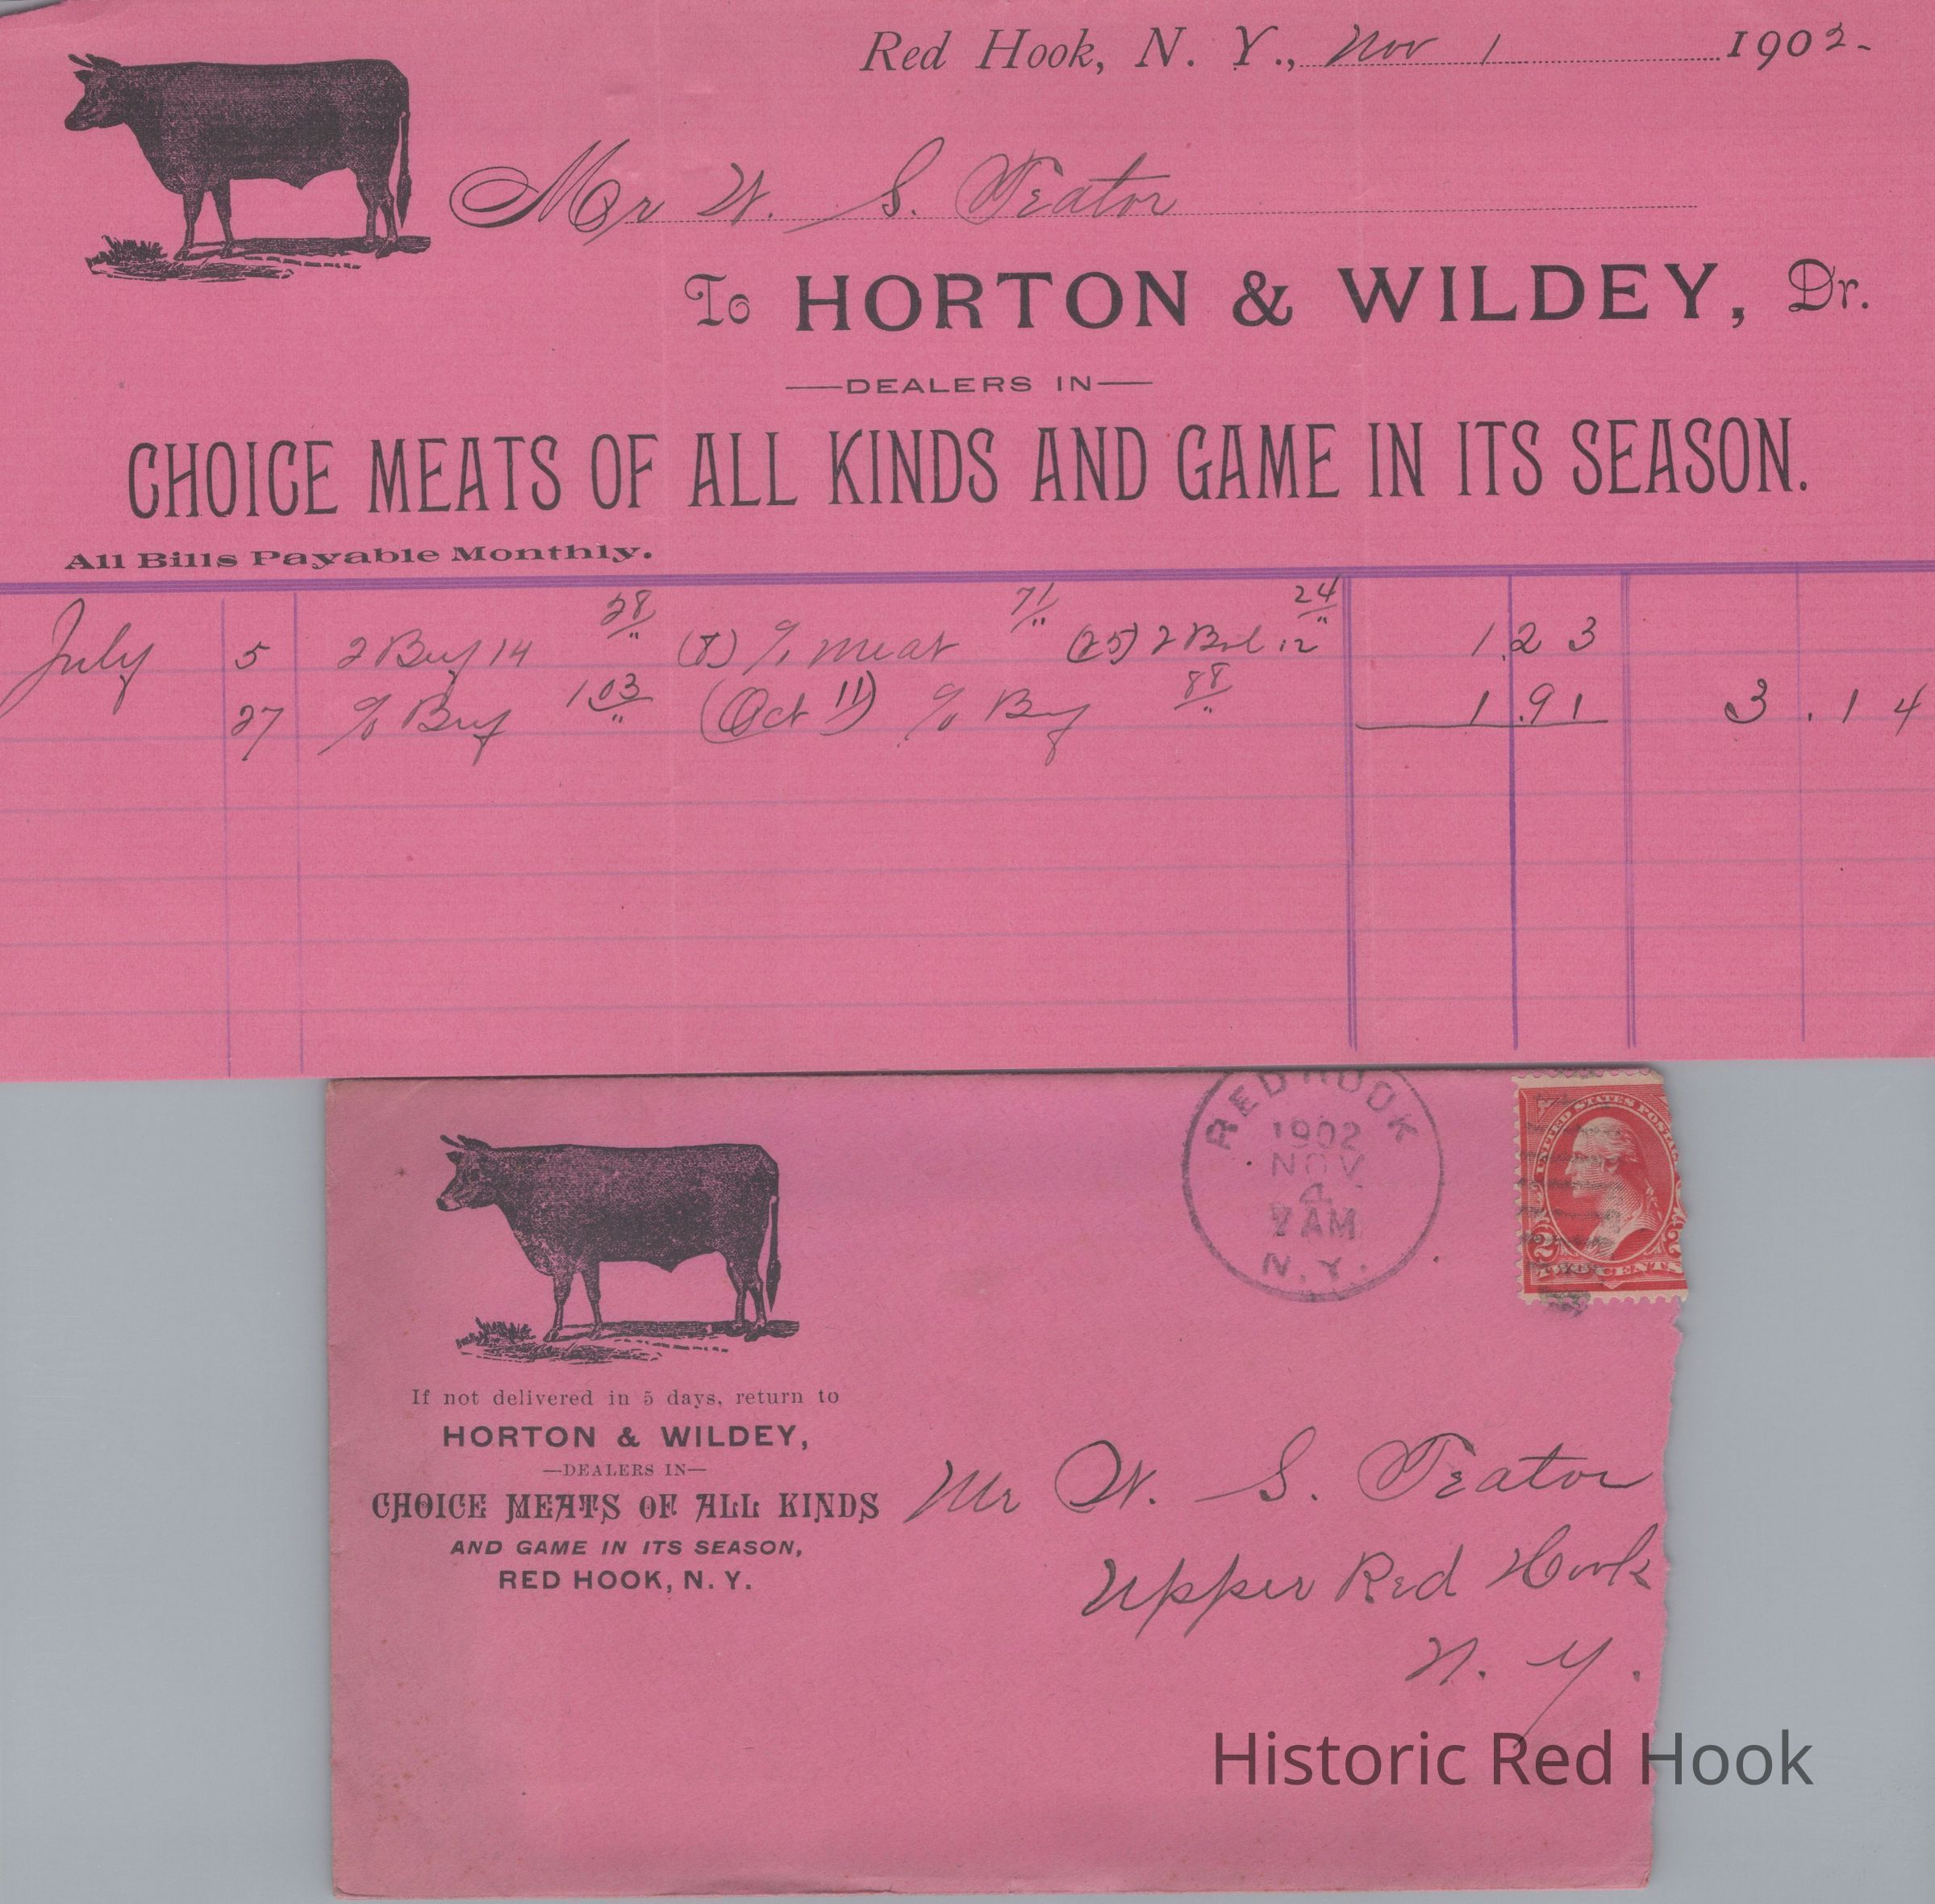 Red Hook, N. Y., Nov 1 1902-
Mr W. S. Teator
To HORTON & WILDEY, Dr.
—DEALERS IN—
CHOICE MEATS OF ALL KINDS AND GAME IN ITS SEASON.
All Bills Payable Monthly.
July 5 2 Beef 14 28 (8) % meat 71 (25) 2 Bol 12 24 1.23
27 % Beef 1.03 (Oct 11) % Beef 88 1.91 3.14
RED HOOK
1902
NOV
4
7 AM
N.Y.
UNITED STATES POSTAGE
2 2
TWO CENTS
If not delivered in 5 days, return to
HORTON & WILDEY,
—DEALERS IN—
CHOICE MEATS OF ALL KINDS
AND GAME IN ITS SEASON,
RED HOOK, N. Y.
Mr W. S. Teator
Upper Red Hook
N. Y.
Historic Red Hook